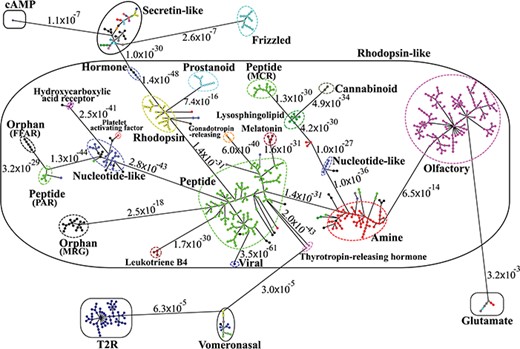 cAMP
1.1x10⁻⁷
Secretin-like
2.6x10⁻⁷
Frizzled
1.0x10⁻³⁰
Rhodopsin-like
Hormone
1.4x10⁻⁴⁸
Prostanoid
7.4x10⁻¹⁶
Peptide
(MCR)
1.3x10⁻³⁰
Cannabinoid
4.9x10⁻³⁴
Hydroxycarboxylic
acid receptor
2.5x10⁻⁴¹
Rhodopsin
Gonadotropa
-releasing
Lysosphingolipid
4.2x10⁻³⁰
Melatonin
Orphan
(FFAR)
Platelet
activating factor
6.0x10⁻⁴⁰
1.6x10⁻³¹
1.0x10⁻²⁷
Olfactory
3.2x10⁻²⁹
1.3x10⁻⁴⁴
Nucleotide-like
2.8x10⁻⁴³
Nucleotide-like
Peptide
(PAR)
Peptide
1.0x10⁻³⁶
6.5x10⁻¹⁴
1.4x10⁻³¹
2.5x10⁻¹⁸
2.0x10⁻⁴³
Orphan
(MRG)
1.7x10⁻³⁰
Amine
Leukotriene B4
3.5x10⁻⁶¹
Viral
Thyrotropin-releasing hormone
3.2x10⁻³
3.0x10⁻⁵
6.3x10⁻⁵
Glutamate
T2R
Vomeronasal